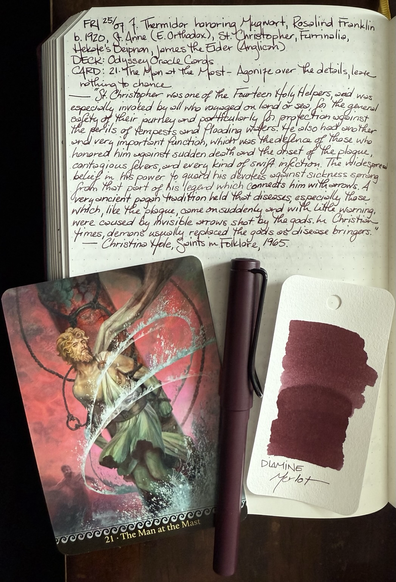 FRI 25/07, 7. Thermidor honoring Mugwort, Rosalind Franklin
b. 1920, St. Anne (E. Orthodox), St. Christopher, Furrinalia,
Hekate's Deipnon, James the Elder (Anglican)
DECK: Odyssey Oracle Cards
CARD: 21. The Man at the Mast - Agonize over the details, leave
nothing to chance
St. Christopher was one of the Fourteen Holy Helpers, and was
especially invoked by all who voyaged on land or sea, for the general
safety of their journey and particularly for protection against
the perils of tempests and flooding waters. He also had another
and very important function, which was the defence of those who
honored him against sudden death and the onset of the plague,
contagious fevers, and every kind of swift infection. The widespread
belief in his power to guard his devotees against sickness sprang
from that part of his legend which connects him with arrows. A
very ancient pagan tradition held that diseases, especially those
which, like the plague, came on suddenly and with little warning,
were caused by invisible arrows shot by the gods. In Christian
times, demons usually replaced the gods as disease bringers."
— Christina Hole, Saints in Folklore, 1965.
21 - The Man at the Mast
DIAMINE
Merlot